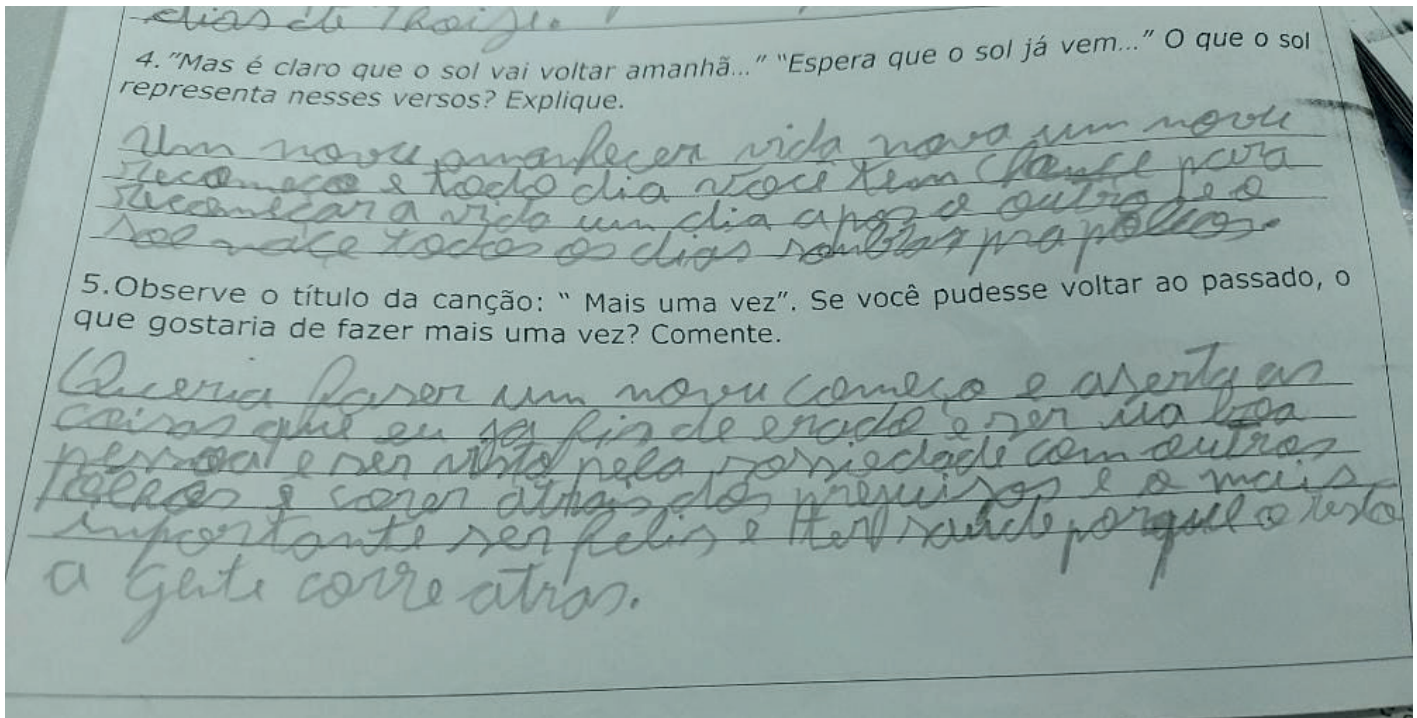 dias de hoije.
4. "Mas é claro que o sol vai voltar amanhã..." "Espera que o sol já vem..." O que o sol
representa nesses versos? Explique.
Um novu amanhecer vida nova um novu
recomeço e todo dia você tem chance para
recomeçar a vida um dia apos o outro e o
sol naçe todos os dias
5.Observe o título da canção: " Mais uma vez". Se você pudesse voltar ao passado, o
que gostaria de fazer mais uma vez? Comente.
Queria faser um novu começo e aserta as
coisas que eu ja fis de erado e ser ua boa
pessoa e ser visto pela sosiedade com outros
e corer atrais dos prejuisos e o mais
importante ser felis e ter saude porque o resto
a gente corre atras.